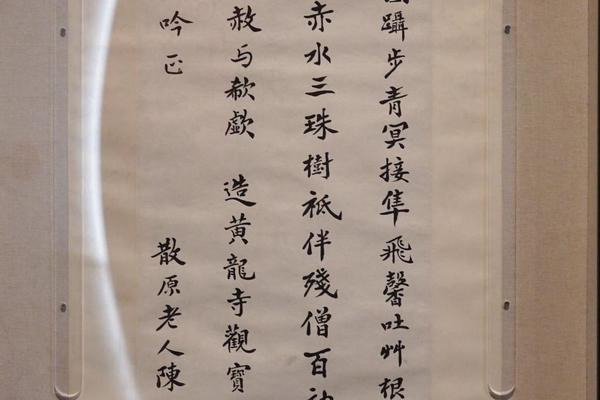 躡步青冥接隼飛馨吐艸根
赤水三珠樹祗伴殘僧百衲
赦与欷歔 造黃龍寺觀寶
吟正 散原老人陳